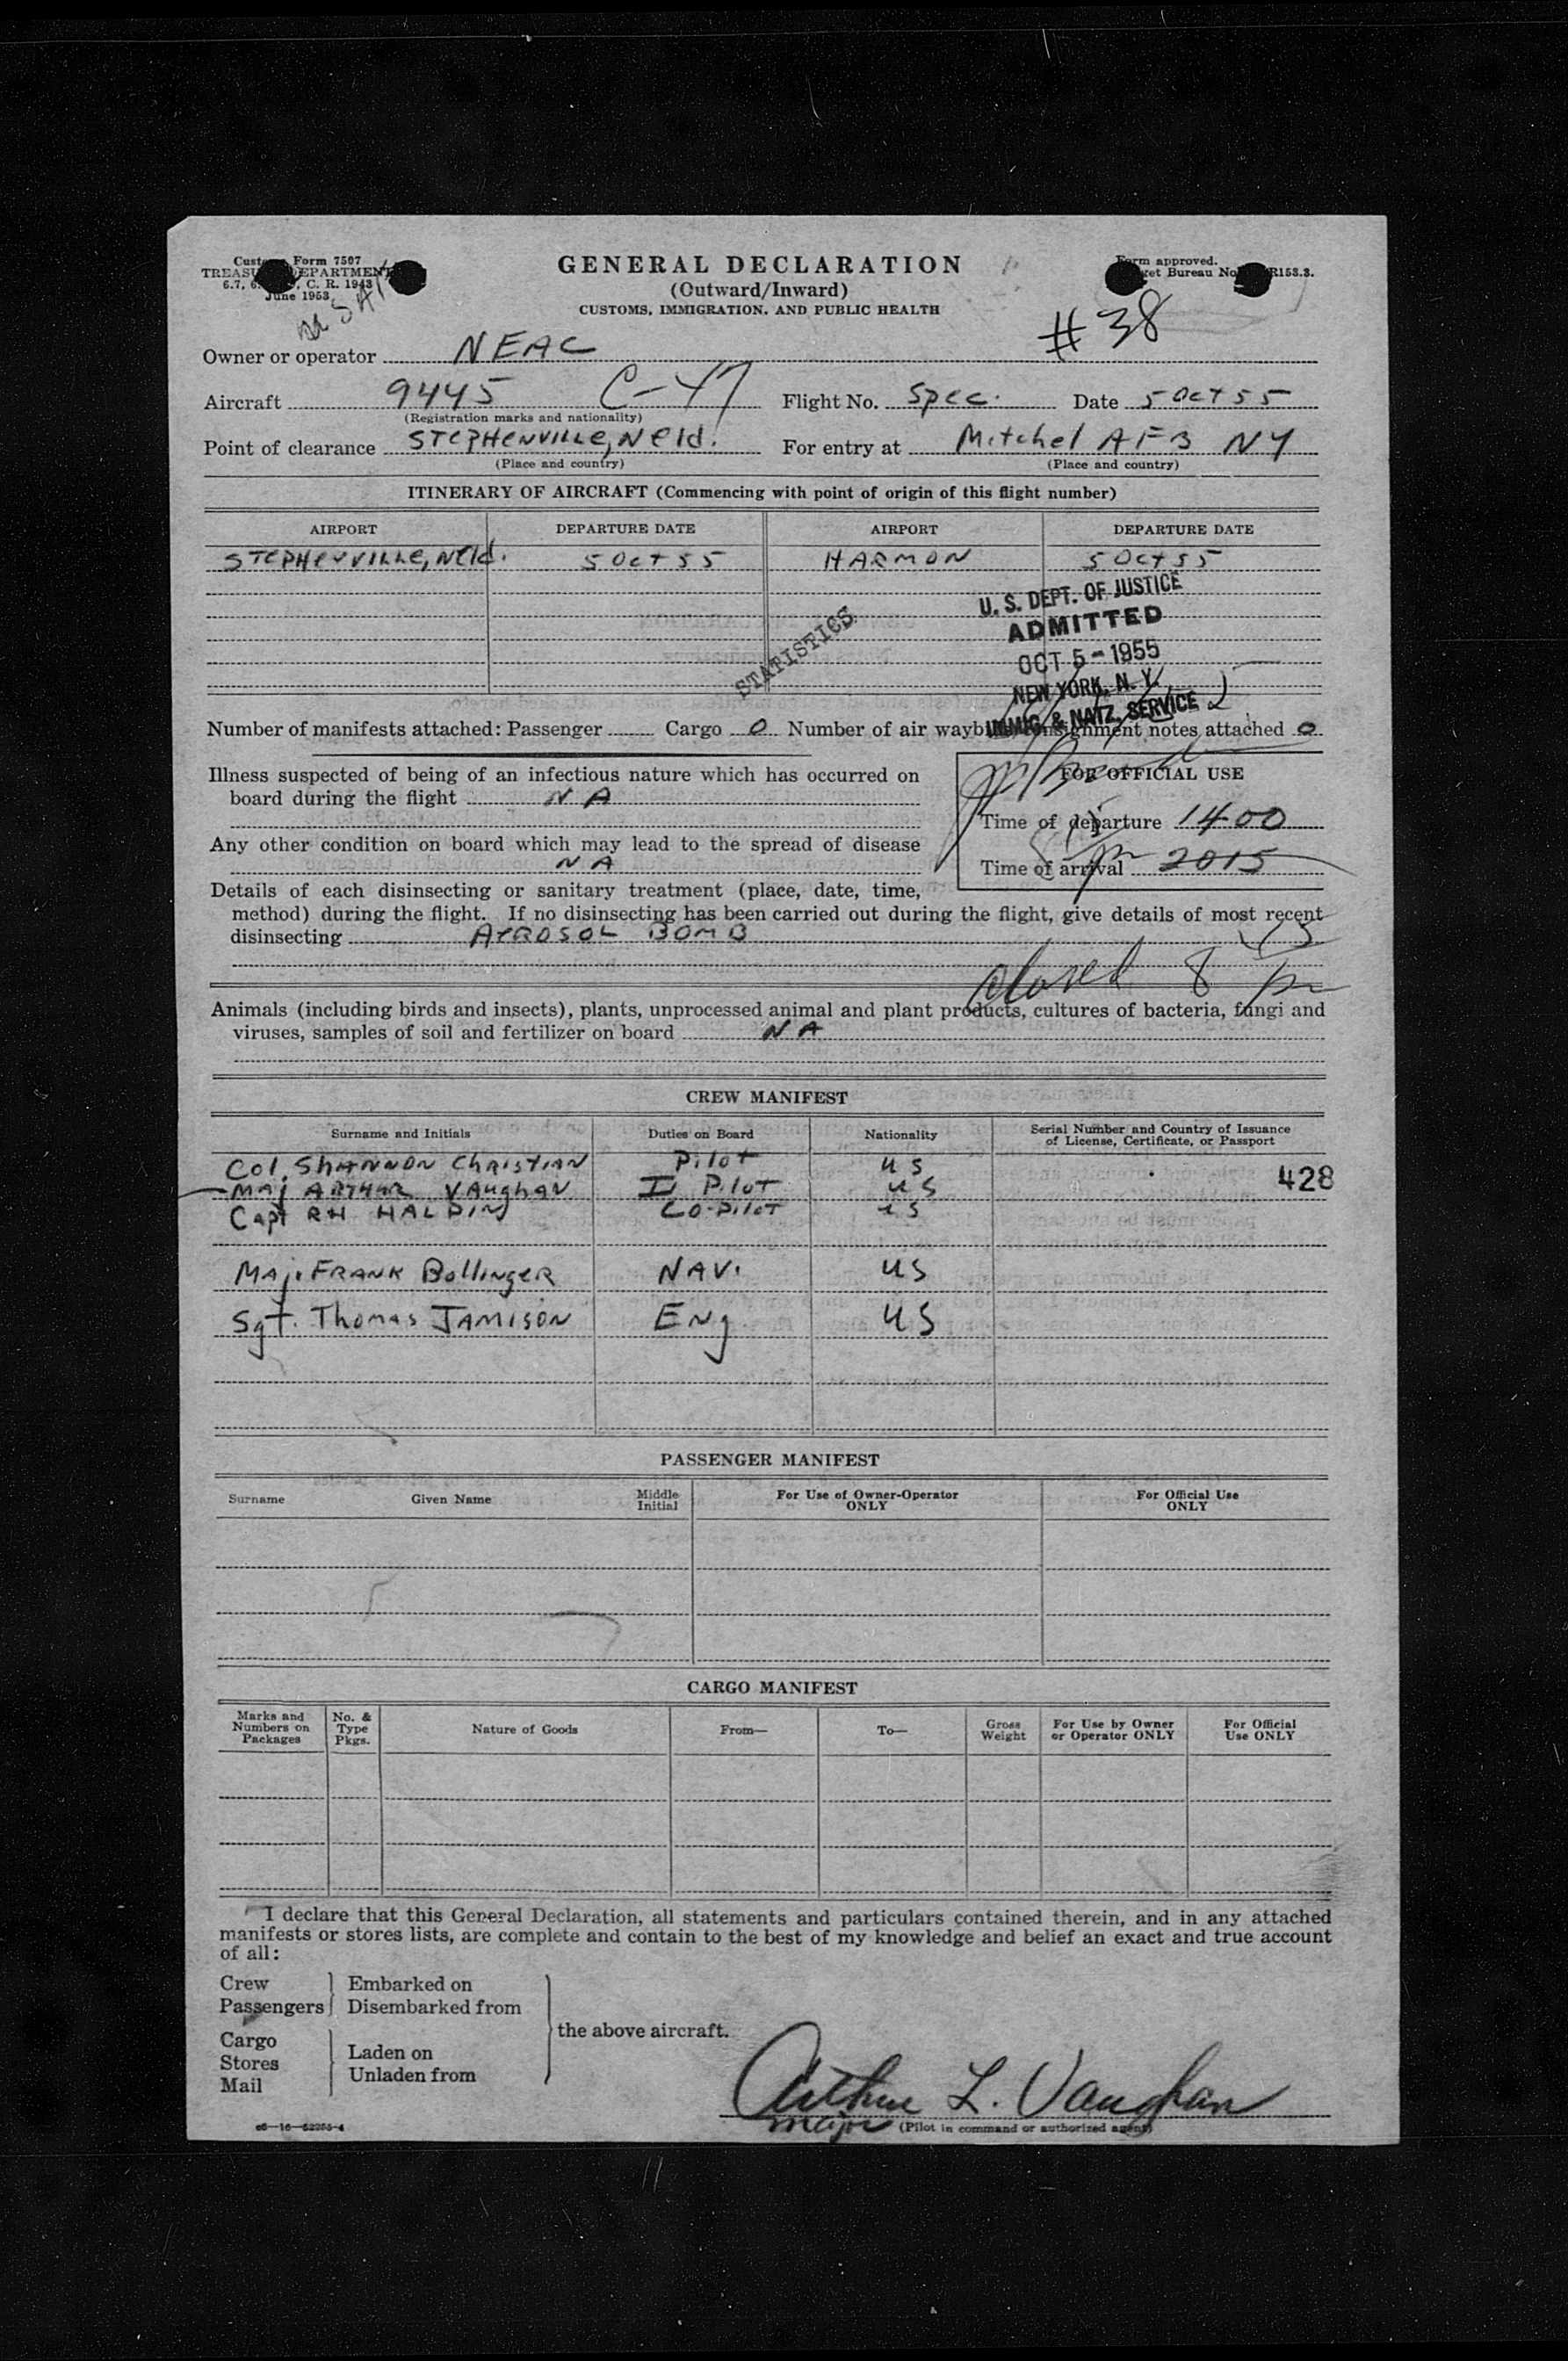 Customs Form 7507
TREASURY DEPARTMENT
C. R. 1943
June 1953
GENERAL DECLARATION
(Outward/Inward)
CUSTOMS, IMMIGRATION, AND PUBLIC HEALTH
Form approved.
Budget Bureau No. R153.3.
#38
Owner or operator NEAC
Aircraft 9445 C-47 Flight No. Spec. Date 5 Oct 55
(Registration marks and nationality)
Point of clearance STEPHENVILLE, Nfld. For entry at Mitchel AFB NY
(Place and country) (Place and country)
ITINERARY OF AIRCRAFT (Commencing with point of origin of this flight number)
AIRPORT DEPARTURE DATE AIRPORT DEPARTURE DATE
STEPHENVILLE, Nfld. 5 Oct 55 HARMON 5 Oct 55
U. S. DEPT. OF JUSTICE
ADMITTED
OCT 5 - 1955
NEW YORK, N. Y.
IMMIG. & NATZ. SERVICE
STATISTICS
Number of manifests attached: Passenger Cargo 0 Number of air waybills/consignment notes attached 0
Illness suspected of being of an infectious nature which has occurred on
board during the flight NA
FOR OFFICIAL USE
Time of departure 1400
Any other condition on board which may lead to the spread of disease
NA
Time of arrival 2015
Details of each disinsecting or sanitary treatment (place, date, time,
method) during the flight. If no disinsecting has been carried out during the flight, give details of most recent
disinsecting AEROSOL BOMB
closed 8 15 pm
Animals (including birds and insects), plants, unprocessed animal and plant products, cultures of bacteria, fungi and
viruses, samples of soil and fertilizer on board NA
CREW MANIFEST
Surname and Initials Duties on Board Nationality Serial Number and Country of Issuance
of License, Certificate, or Passport
Col. SHANNON Christian Pilot US
Maj ARTHUR VAughaN II Pilot US 428
Capt RH HALPIN Co-Pilot US
Maj. FRANK Bollinger NAV. US
Sgt. Thomas JAMISON ENg US
PASSENGER MANIFEST
Surname Given Name Middle
Initial For Use of Owner-Operator
ONLY For Official Use
ONLY
CARGO MANIFEST
Marks and
Numbers on
Packages No. &
Type
Pkgs. Nature of Goods From— To— Gross
Weight For Use by Owner
or Operator ONLY For Official
Use ONLY
I declare that this General Declaration, all statements and particulars contained therein, and in any attached
manifests or stores lists, are complete and contain to the best of my knowledge and belief an exact and true account
of all:
Crew Embarked on
Passengers Disembarked from
the above aircraft.
Cargo
Stores Laden on
Mail Unladen from
Arthur L. Vaughan
Major (Pilot in command or authorized agent)
c6—16—52255-4